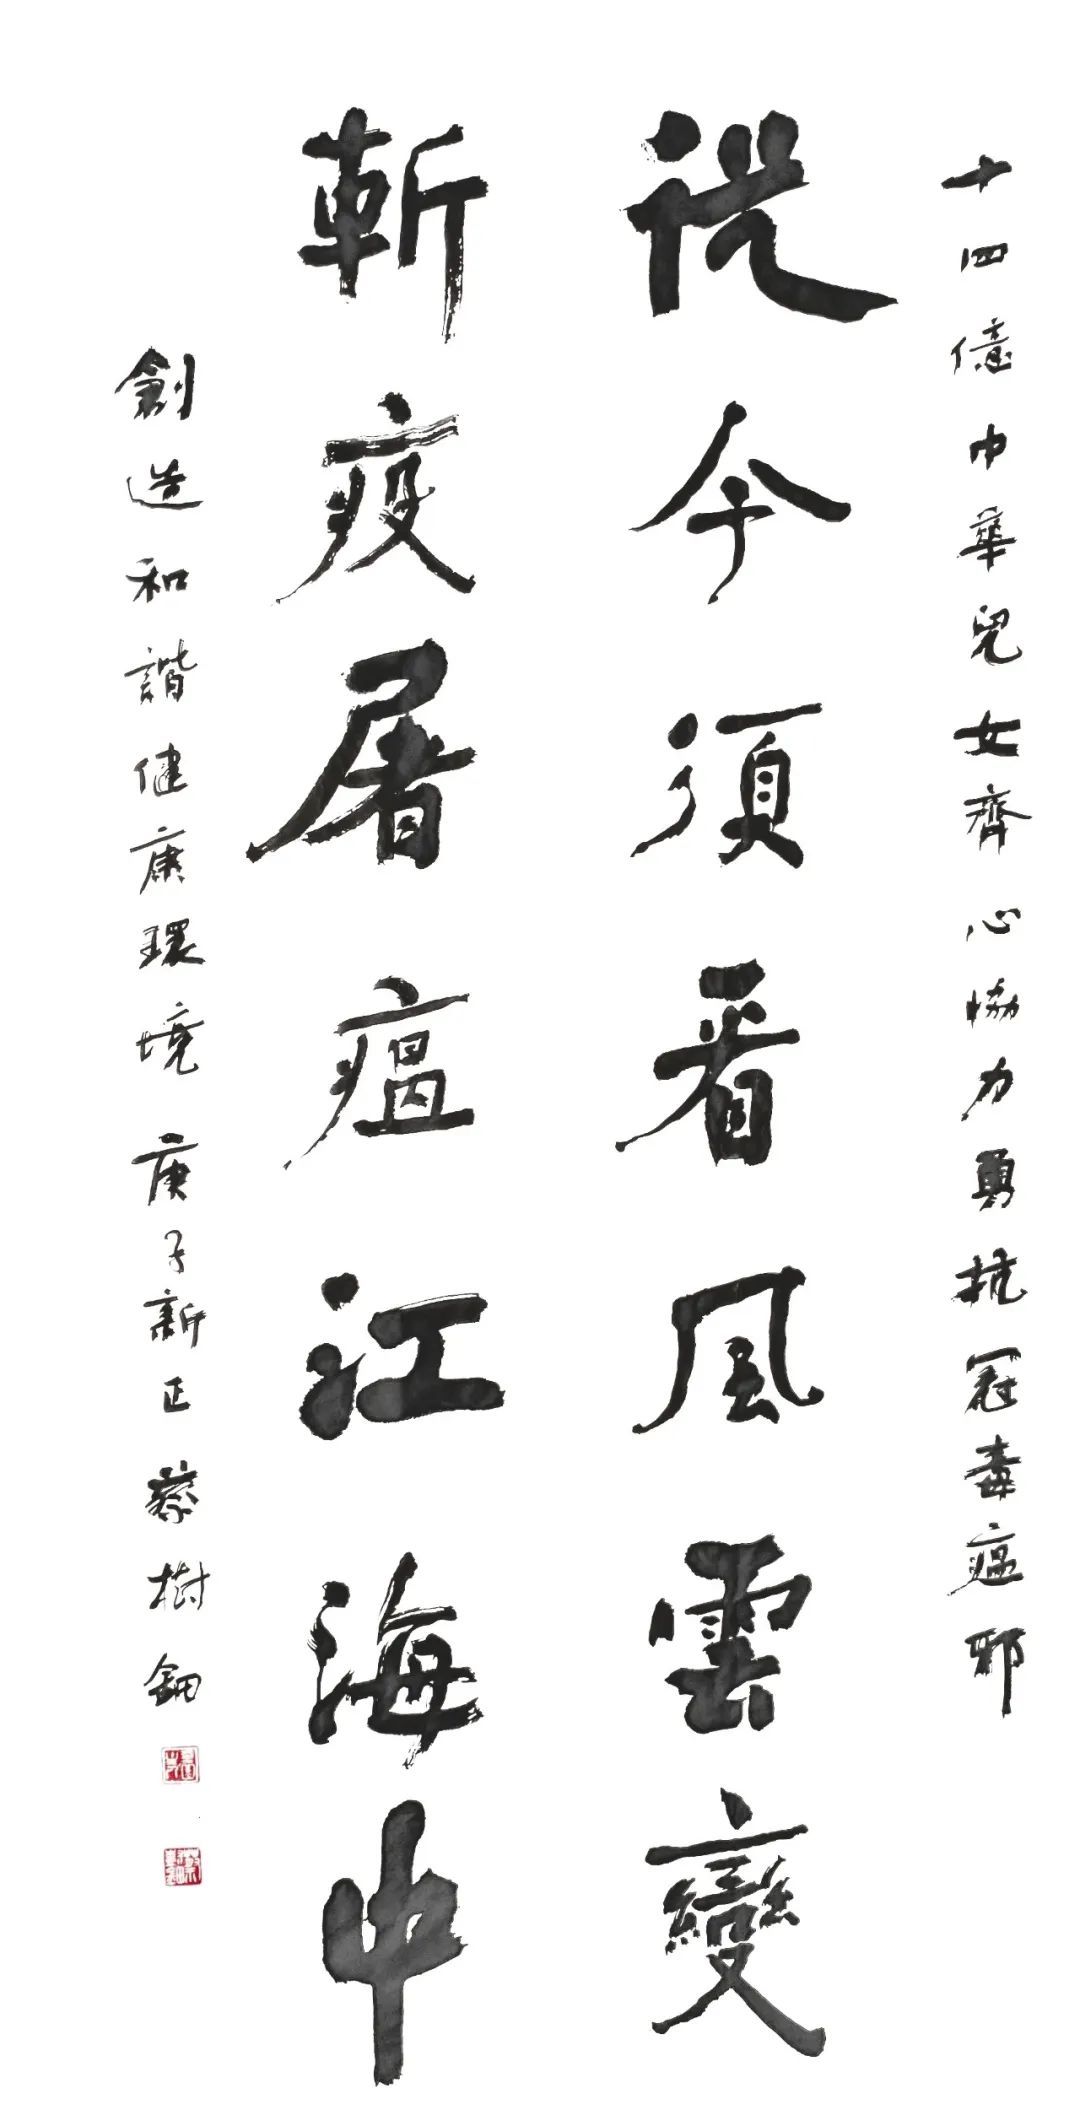 十四億中華兒女齊心協力勇抗冠毒瘟邪
從今須看風雲變
斬疫屠瘟江海中
創造和諧健康環境 庚子新正 蔡樹鈿